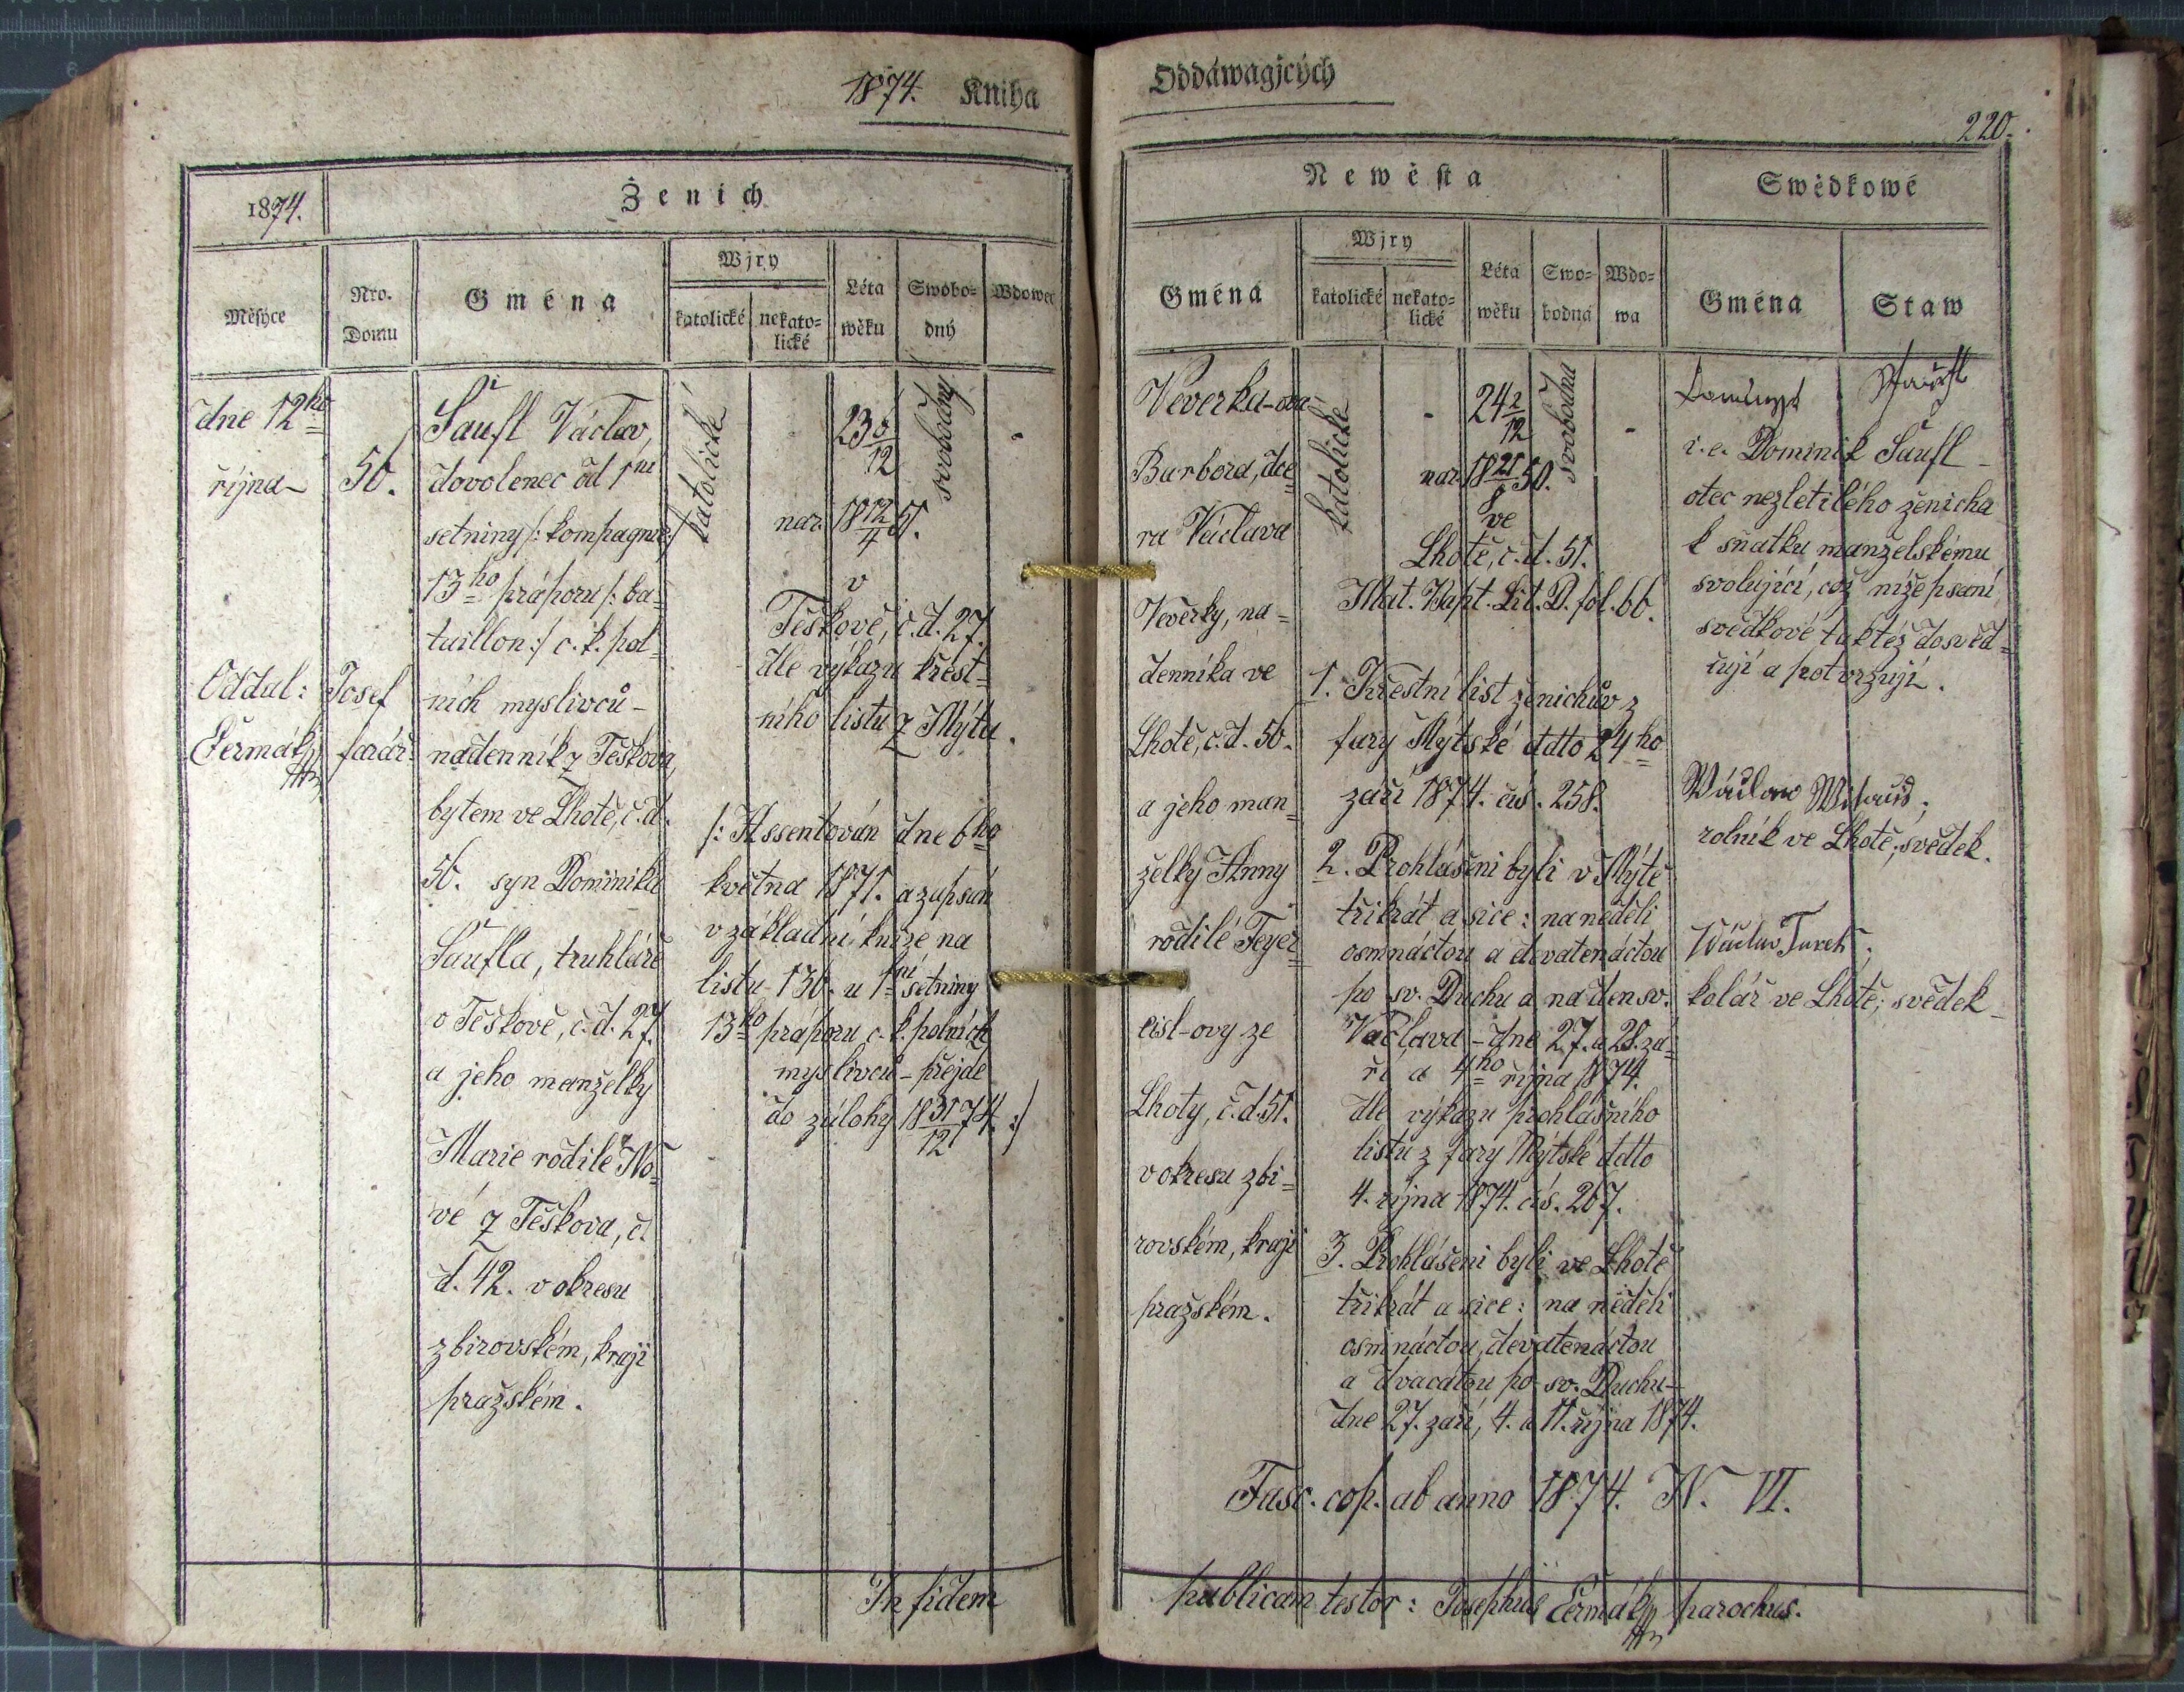 1874. Kniha
1874.
Ženich
Měsýce
Nro.
Domu
Gména
Wjry
katolické
nekato=
lické
Léta
wěku
Swobo=
dný
Wdowec
dne 12ho
října
50.
Oddal: Josef
Čermák farář.
Šaufl Václav,
dovolenec od 1ní
setniny /: kompagnie :/
13ho práporu /: ba=
taillon :/ c. k. pol=
ních myslivců –
nádenník z Těškova,
bytem ve Lhotě, č. d.
50. syn Dominika
Šaufla, truhláře
v Těškově, č. d. 27.
a jeho manželky
Marie rodilé No=
vé z Těškova, č.
d. 42. v okresu
zbirovském, kraji
pražském.
katolické
23 6/12
svobodný
-
nar. 18 12/4 51.
v
Těškově, č. d. 27.
dle výkazu křest=
ního listu z Mýta.
/: Assentován dne 6ho
května 1871. a zapsán
v základní knize na
listu 136. u 1ní setniny
13ho práporu c. k. polních
myslivců – přejde
do zálohy 18 31/12 74. :/
In fidem
Oddáwagjcých
220.
Newěsta
Swědkowé
Gména
Wjry
katolické
nekato=
lické
Léta
wěku
Swo=
bodná
Wdo=
wa
Gména
Staw
Veverka-ova
Barbora, dce=
ra Václava
Veverky, ná=
denníka ve
Lhotě, č. d. 50.
a jeho man=
želky Anny
rodilé Feyer=
eisl-ovy ze
Lhoty, č. d. 51.
v okresu zbi=
rovském, kraji
pražském.
katolické
-
24 2/12
svobodna
-
nar. 18 21/8 50.
ve
Lhotě, č. d. 51.
Mat. Bapt. Lit. D. fol. 66.
1. Křestní list ženichův z
fary Mýtské ddto 24ho
září 1874. čís. 258.
2. Prohlášeni byli v Mýtě
třikrát a sice: na neděli
osmnáctou a devatenáctou
po sv. Duchu a na den sv.
Václava – dne 27. a 28. zá=
ří a 4ho října 1874.
dle výkazu prohlášního
listu z fary Mýtské ddto
4. října 1874. čís. 267.
3. Prohlášeni byli ve Lhotě
třikrát a sice: na neděli
osmnáctou, devatenáctou
a dvacátou po sv. Duchu –
dne 27. září, 4. a 11. října 1874.
i. e. Dominik Šaufl –
otec nezletilého ženicha
k sňatku manželskému
svolující, což nížepsaní
svědkové taktéž dosvěd=
čují a potvrzují.
Wáclaw
rolník ve Lhotě, svědek.
Wáclav Turek;
kolář ve Lhotě; svědek –
Fasc. cop. ab anno 1874. N. VI.
publicam testor: Josephus Čermák parochus.